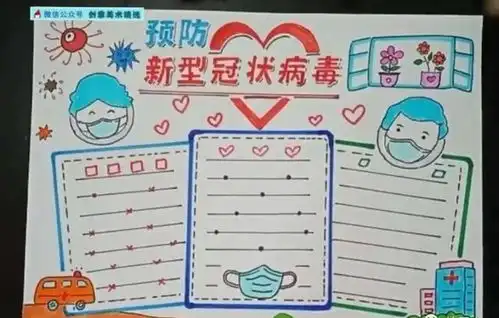 微信公众号 创意美术精选
预防
新型冠状病毒